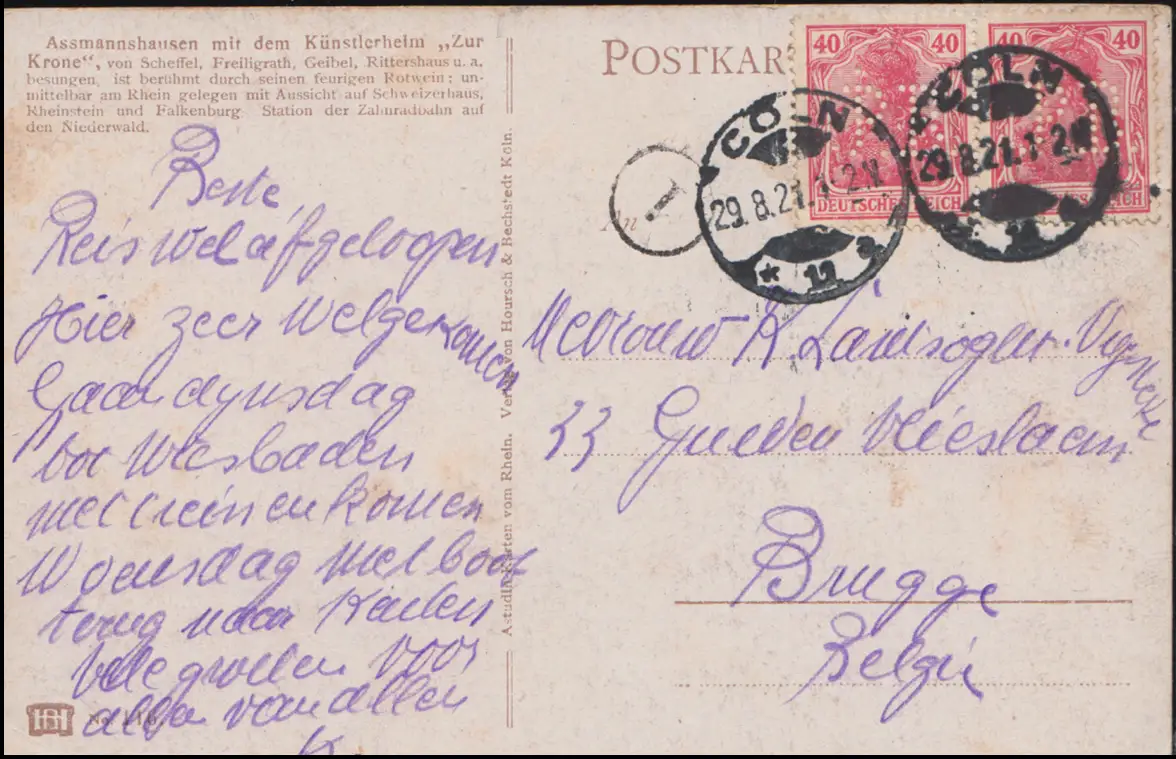 Assmannshausen mit dem Künstlerheim „Zur
Krone“, von Scheffel, Freiligrath, Geibel, Rittershaus u. a.
besungen, ist berühmt durch seinen feurigen Rotwein; un-
mittelbar am Rhein gelegen mit Aussicht auf Schweizerhaus,
Rheinstein und Falkenburg. Station der Zahnradbahn auf
den Niederwald.
POSTKAR
40 40
40 40
DEUTSCHES REICH
REICH
CÖLN
29.8.21.1-2N
* 11 a
CÖLN
29.8.21.1-2N
11
1
An
Beste
Reis wel afgeloopen
Hier zeer welgekomen
Gaan dynsdag
tot Wiesbaden
met trein en komen
Woensdag met boot
terug naar Keulen
Vele groeten voor
allen van allen
K
Verlag von Hoursch & Bechstedt Köln.
A-studien-Karten vom Rhein.
Mevrouw K.
33 Gulden Vlieslaan
Brugge
België
HB
No.